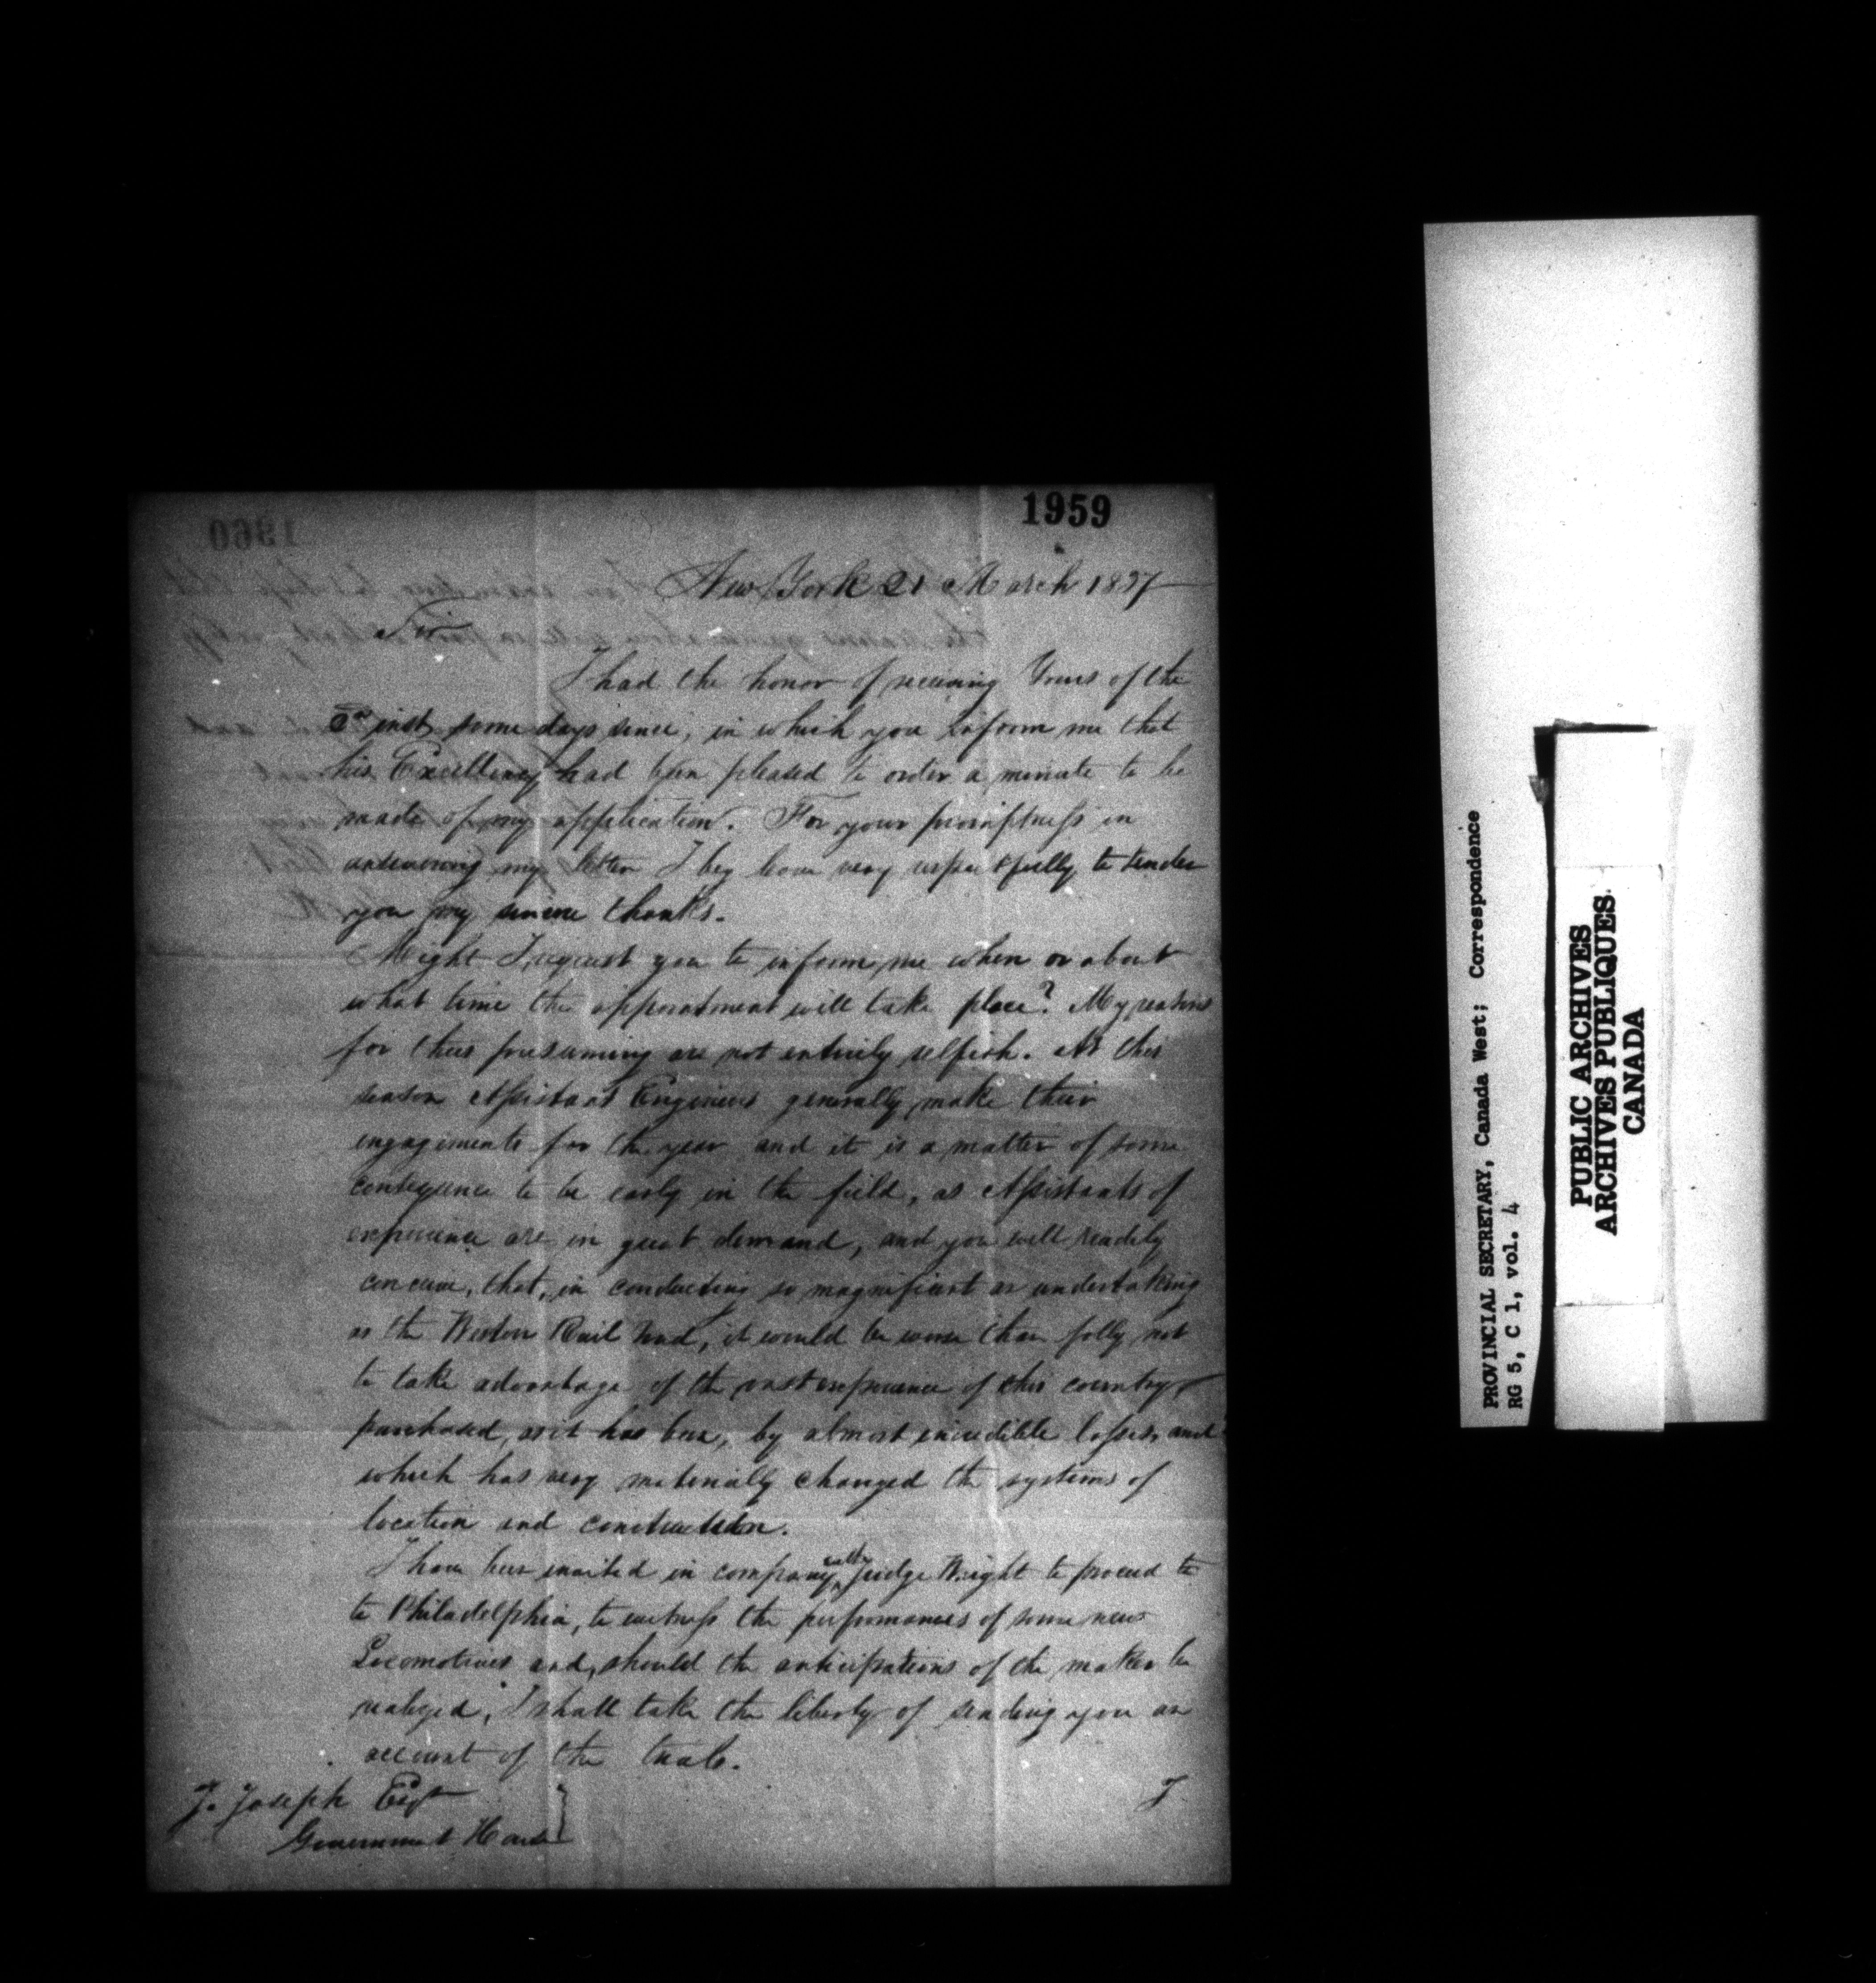 1959
New York 21 March 1837
Sir
I had the honor of receiving Yours of the
inst, some days since, in which you inform me that
his Excellency had been pleased to order a minute to be
made of my application. For your promptness in
answering my letter I beg leave very respectfully to tender
you my sincere thanks.
Might I request you to inform me when or about
what time the appointment will take place? My reasons
for thus presuming are not entirely selfish. At this
season Assistant Engineers generally make their
engagements for the year and it is a matter of some
consequence to be early in the field, as Assistants of
experience are in great demand, and you will readily
conceive, that, in conducting so magnificent an undertaking
as the Western Rail Road, it would be worse than folly not
to take advantage of the vast experience of this country,
purchased, as it has been, by almost incredible losses, and
which has very materially changed the systems of
location and construction.
I have been invited in company with Judge Wright to proceed to
to Philadelphia, to witness the performances of some new
Locomotives and, should the anticipations of the maker be
realized, I shall take the liberty of sending you an
account of the trials.
J. Joseph Esqr
Government House
I
PROVINCIAL SECRETARY, Canada West; Correspondence
RG 5, C 1, vol. 4
PUBLIC ARCHIVES
ARCHIVES PUBLIQUES
CANADA